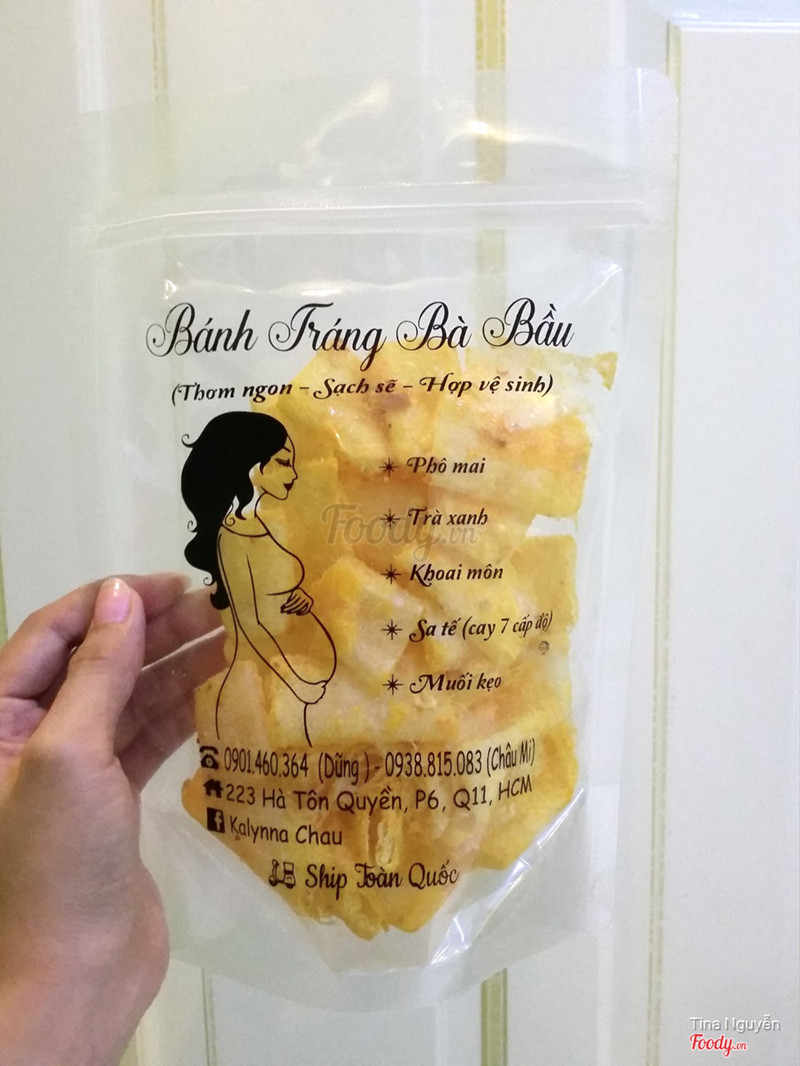 Bánh Tráng Bà Bầu
(Thơm ngon - Sạch sẽ - Hợp vệ sinh)
Phô mai
Trà xanh
Foody.vn
Khoai môn
Sa tế (cay 7 cấp độ)
Muối kẹo
0901.460.364 (Dũng) - 0938.815.083 (Châu Mi)
223 Hà Tôn Quyền, P6, Q11, HCM
Kalynna Chau
Ship Toàn Quốc
Tina Nguyễn
Foody.vn